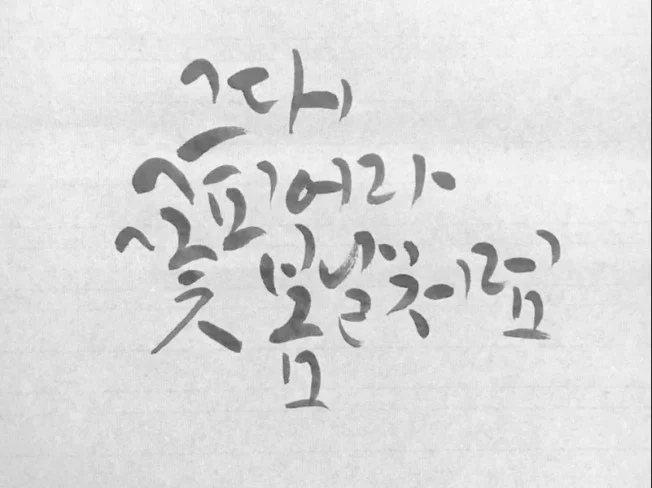 그대
꽃피어라
봄날처럼